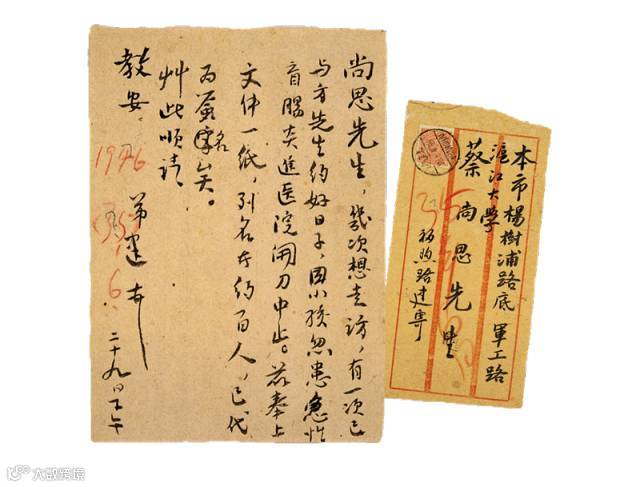 尚思先生，幾次想走訪，有一次已
与方先生约好日子，因小孩忽患急性
盲腸炎進医院開刀中止。兹奉上
文件一紙，列名友约百人，已代
为簽名矣。
艸此順請
教安。
弟建
二十九日下午
1946
6
本市楊樹浦路底 軍工路
滬江大學
蔡尚思先生
福煦路建寄
大数跨境